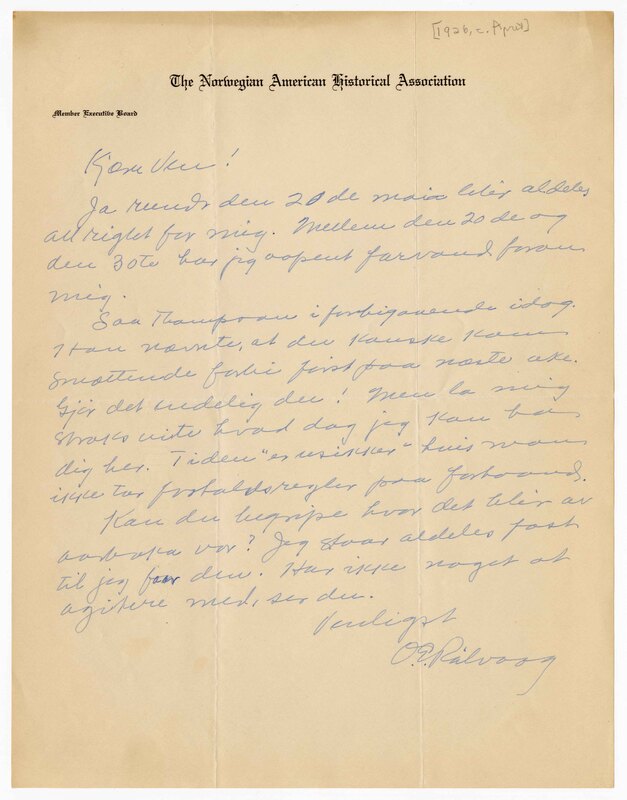 [1926, c. April]
The Norwegian American Historical Association
Member Executive Board
Kjære Ven!
Ja rundt den 20de mai blir aldeles
all right for mig. Mellem den 20de og
den 30te har jeg aapent farvand foran
mig.
Saa Thompson i forbigaaende idag.
Han nævnte, at du kanske kom
smættende forbi først paa næste uke.
Gjør det endelig du! Men la mig
straks vite hvad dag jeg kan ha
dig her. Tiden "er usikker" hvis man
ikke tar forholdsregler paa forhaand.
Kan du begripe hvor det blir av
aarboka vor? Jeg staar aldeles fast
til jeg faar den. Har ikke noget at
agitere med, ser du.
Venligst
O.E. Rølvaag